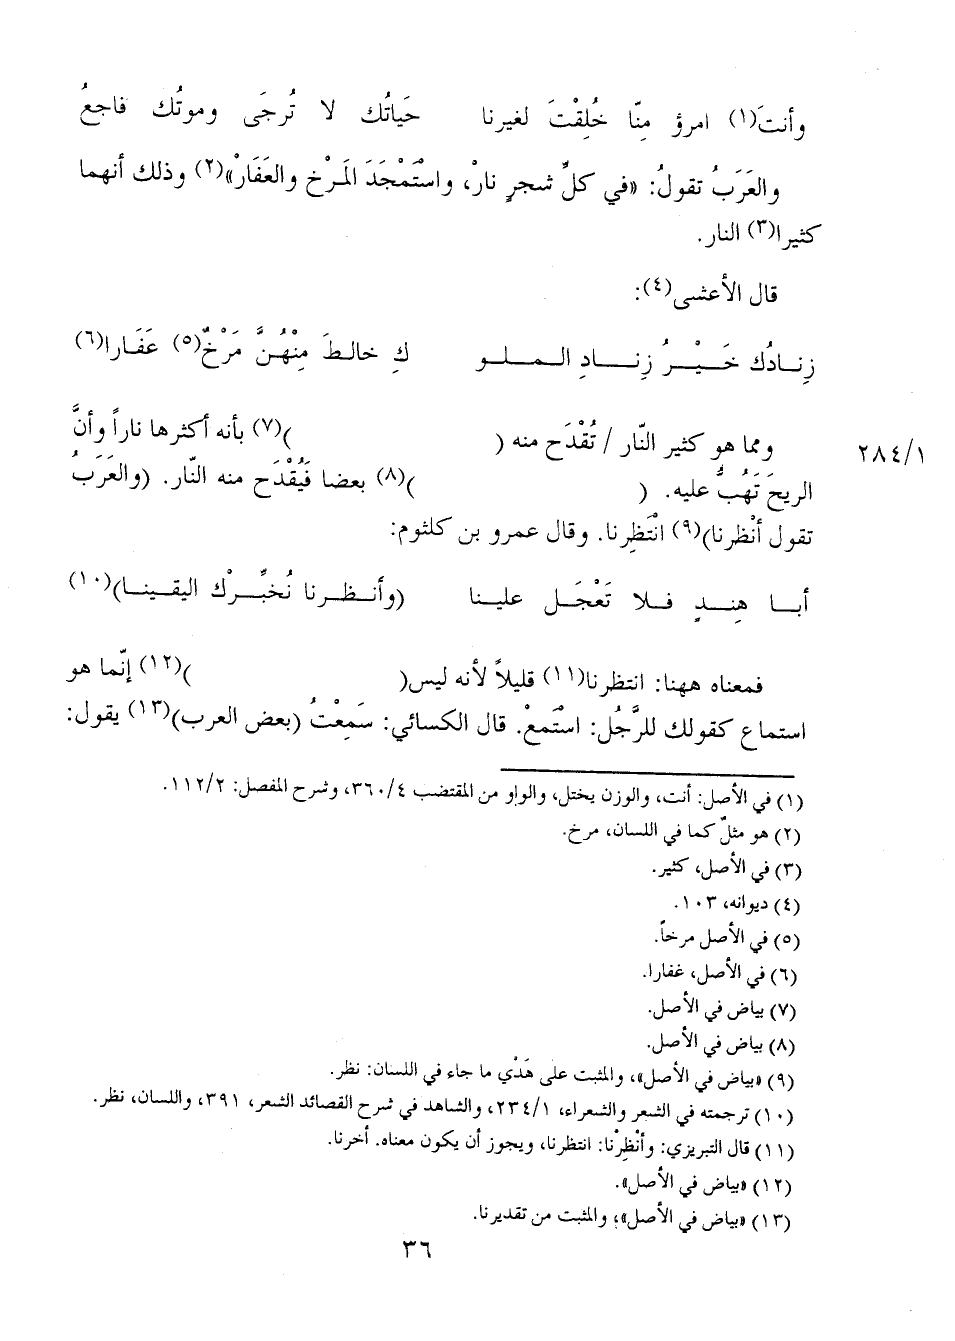 وأنتَ(١) امرؤ مِنّا خُلِقْتَ لغيرنا حَياتُك لا تُرجَى وموتُك فاجعُ
والعَرَبُ تقولُ: «في كلِّ شجرٍ نارْ، واسْتَمْجَدَ المَرْخ والعَفَارْ»(٢) وذلك أنهما
كثيرا(٣) النار.
قال الأعشى(٤):
زِنـادُك خَـيْـرُ زِنـادِ الـملـو كِ خالطَ مِنْهُنَّ مَرْخٌ(٥) عَفَارا(٦)
١/٢٨٤ ومما هو كثير النّار / تُقْدَح منه ( )(٧) بأنه أكثرها ناراً وأنَّ
الريحَ تَهُبُّ عليه. ( )(٨) بعضا فَيُقْدَح منه النّار. (والعَرَبُ
تقول أنْظرنا)(٩) انْتَظِرنا. وقال عمرو بن كلثوم:
أبـا هِنـدٍ فـلا تَعْجَـل علينـا (وأنـظـرنا نُخَبِّـرْك اليقينـا)(١٠)
فمعناه ههنا: انتظرنا(١١) قليلاً لأنه ليس( )(١٢) إنّما هو
استماع كقولك للرَّجُل: اسْتَمِعْ. قال الكسائي: سَمِعْتُ (بعض العرب)(١٣) يقول:
(١) في الأصل: أنت، والوزن يختل، والواو من المقتضب ٣٦٠/٤، وشرح المفصل: ١١٢/٢.
(٢) هو مثلٌ كما في اللسان، مرخ.
(٣) في الأصل، كثير.
(٤) ديوانه، ١٠٣.
(٥) في الأصل مرخاً.
(٦) في الأصل، غفارا.
(٧) بياض في الأصل.
(٨) بياض في الأصل.
(٩) «بياض في الأصل»، والمثبت على هَدْي ما جاء في اللسان: نظر.
(١٠) ترجمته في الشعر والشعراء، ٢٣٤/١، والشاهد في شرح القصائد الشعر، ٣٩١، واللسان، نظر.
(١١) قال التبريزي: وأنْظِرْنا: انتظرنا، ويجوز أن يكون معناه. أخرنا.
(١٢) «بياض في الأصل».
(١٣) «بياض في الأصل»؛ والمثبت من تقديرنا.
٣٦